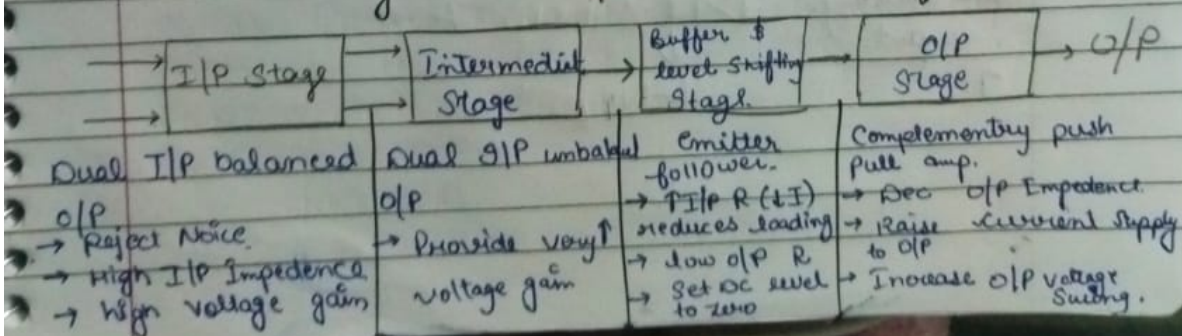 I/P Stage
Intermediat
Stage
Buffer &
level Shifting
Stage.
O/P
Stage
O/P
Dual I/P balanced
O/P
→ Reject Noice
→ High I/P Impedence
→ high voltage gain
Dual I/P unbalnd
O/P
→ Provide very ↑
voltage gain
Emitter
follower.
→ ↑I/p R (↓I)
reduces loading
→ low o/p R
→ Set DC level
to zero
Complementry push
Pull amp.
→ Dec O/P Impedence.
→ Raise Current Supply
to O/P
→ Increase O/P voltage
Swing.